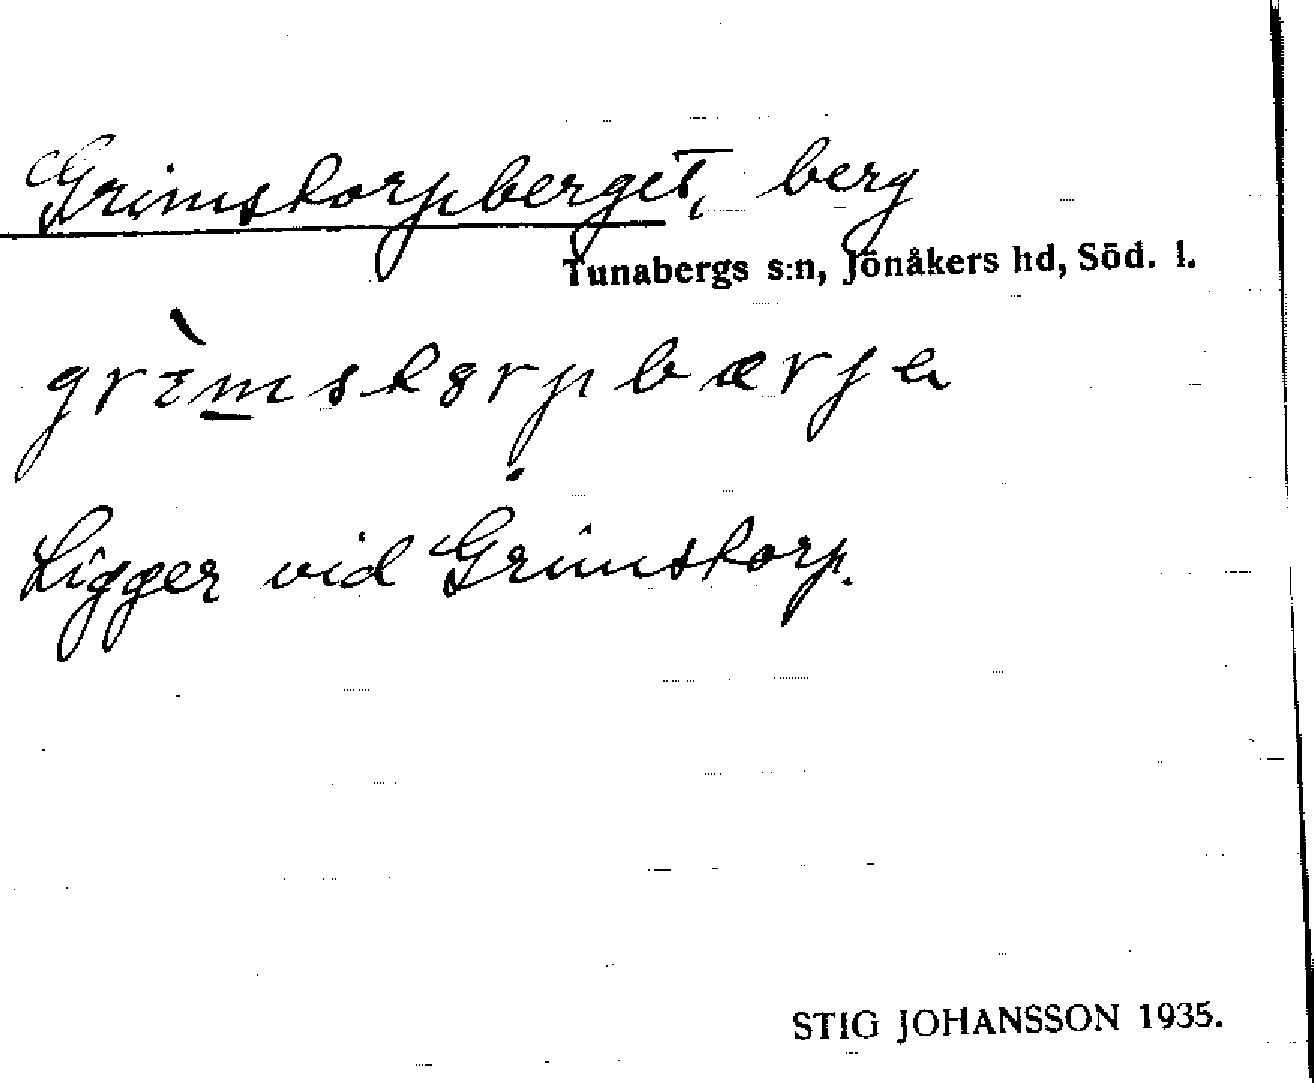 Grimstorpberget, berg
Tunabergs s:n, Jönåkers hd, Söd. l.
Ligger vid Grimstorp.
STIG JOHANSSON 1935.